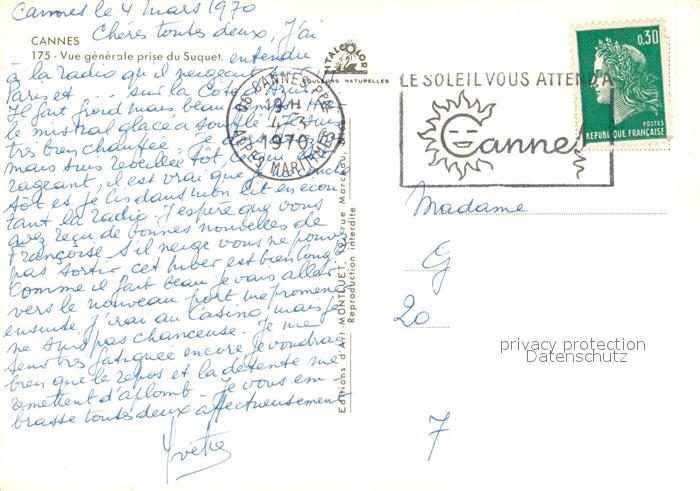 Cannes le 4 mars 1970
Chères toutes deux, J'ai
CANNES
175 - Vue générale prise du Suquet.
entendu
à la radio qu'il neigeait à
Paris et ... sur la Côte d'Azur.
Il fait froid mais beau
le mistral glacé a soufflé. Je suis
très bien chauffée. Je
mais suis réveillée tôt, ce qui
rageant, il est vrai que je
tôt et je lis dans mon lit en écou
tant la radio. J'espère que vous
avez reçu de bonnes nouvelles de
Françoise. S'il neige vous ne pouvez
pas sortir cet hiver est bien long.
Comme il fait beau je vais aller
vers le nouveau port me promener
ensuite j'irai au Casino, mais je
ne suis pas chanceuse. Je me
sens très fatiguée encore je voudrais
bien que le repos et la détente me
remettent d'aplomb. Je vous em-
brasse toutes deux affectueusement
Yvette
COULEURS NATURELLES
06 CANNES PPAL
19 H
4-3
1970
ALPES MARITIMES
Editions d'Art MONTLUET, rue Marceau,
Reproduction interdite
LE SOLEIL VOUS ATTEND A
Cannes
0,30
POSTES
REPUBLIQUE FRANÇAISE
Madame
G
20
7
privacy protection
Datenschutz